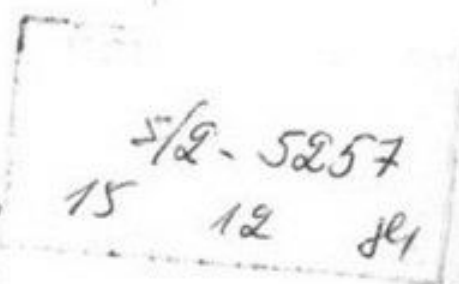 5/2- 5257
15 12